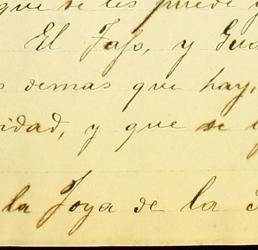 que se les puede
El Tajo, y
demas que hay,
idad, y que se
la Joya de la